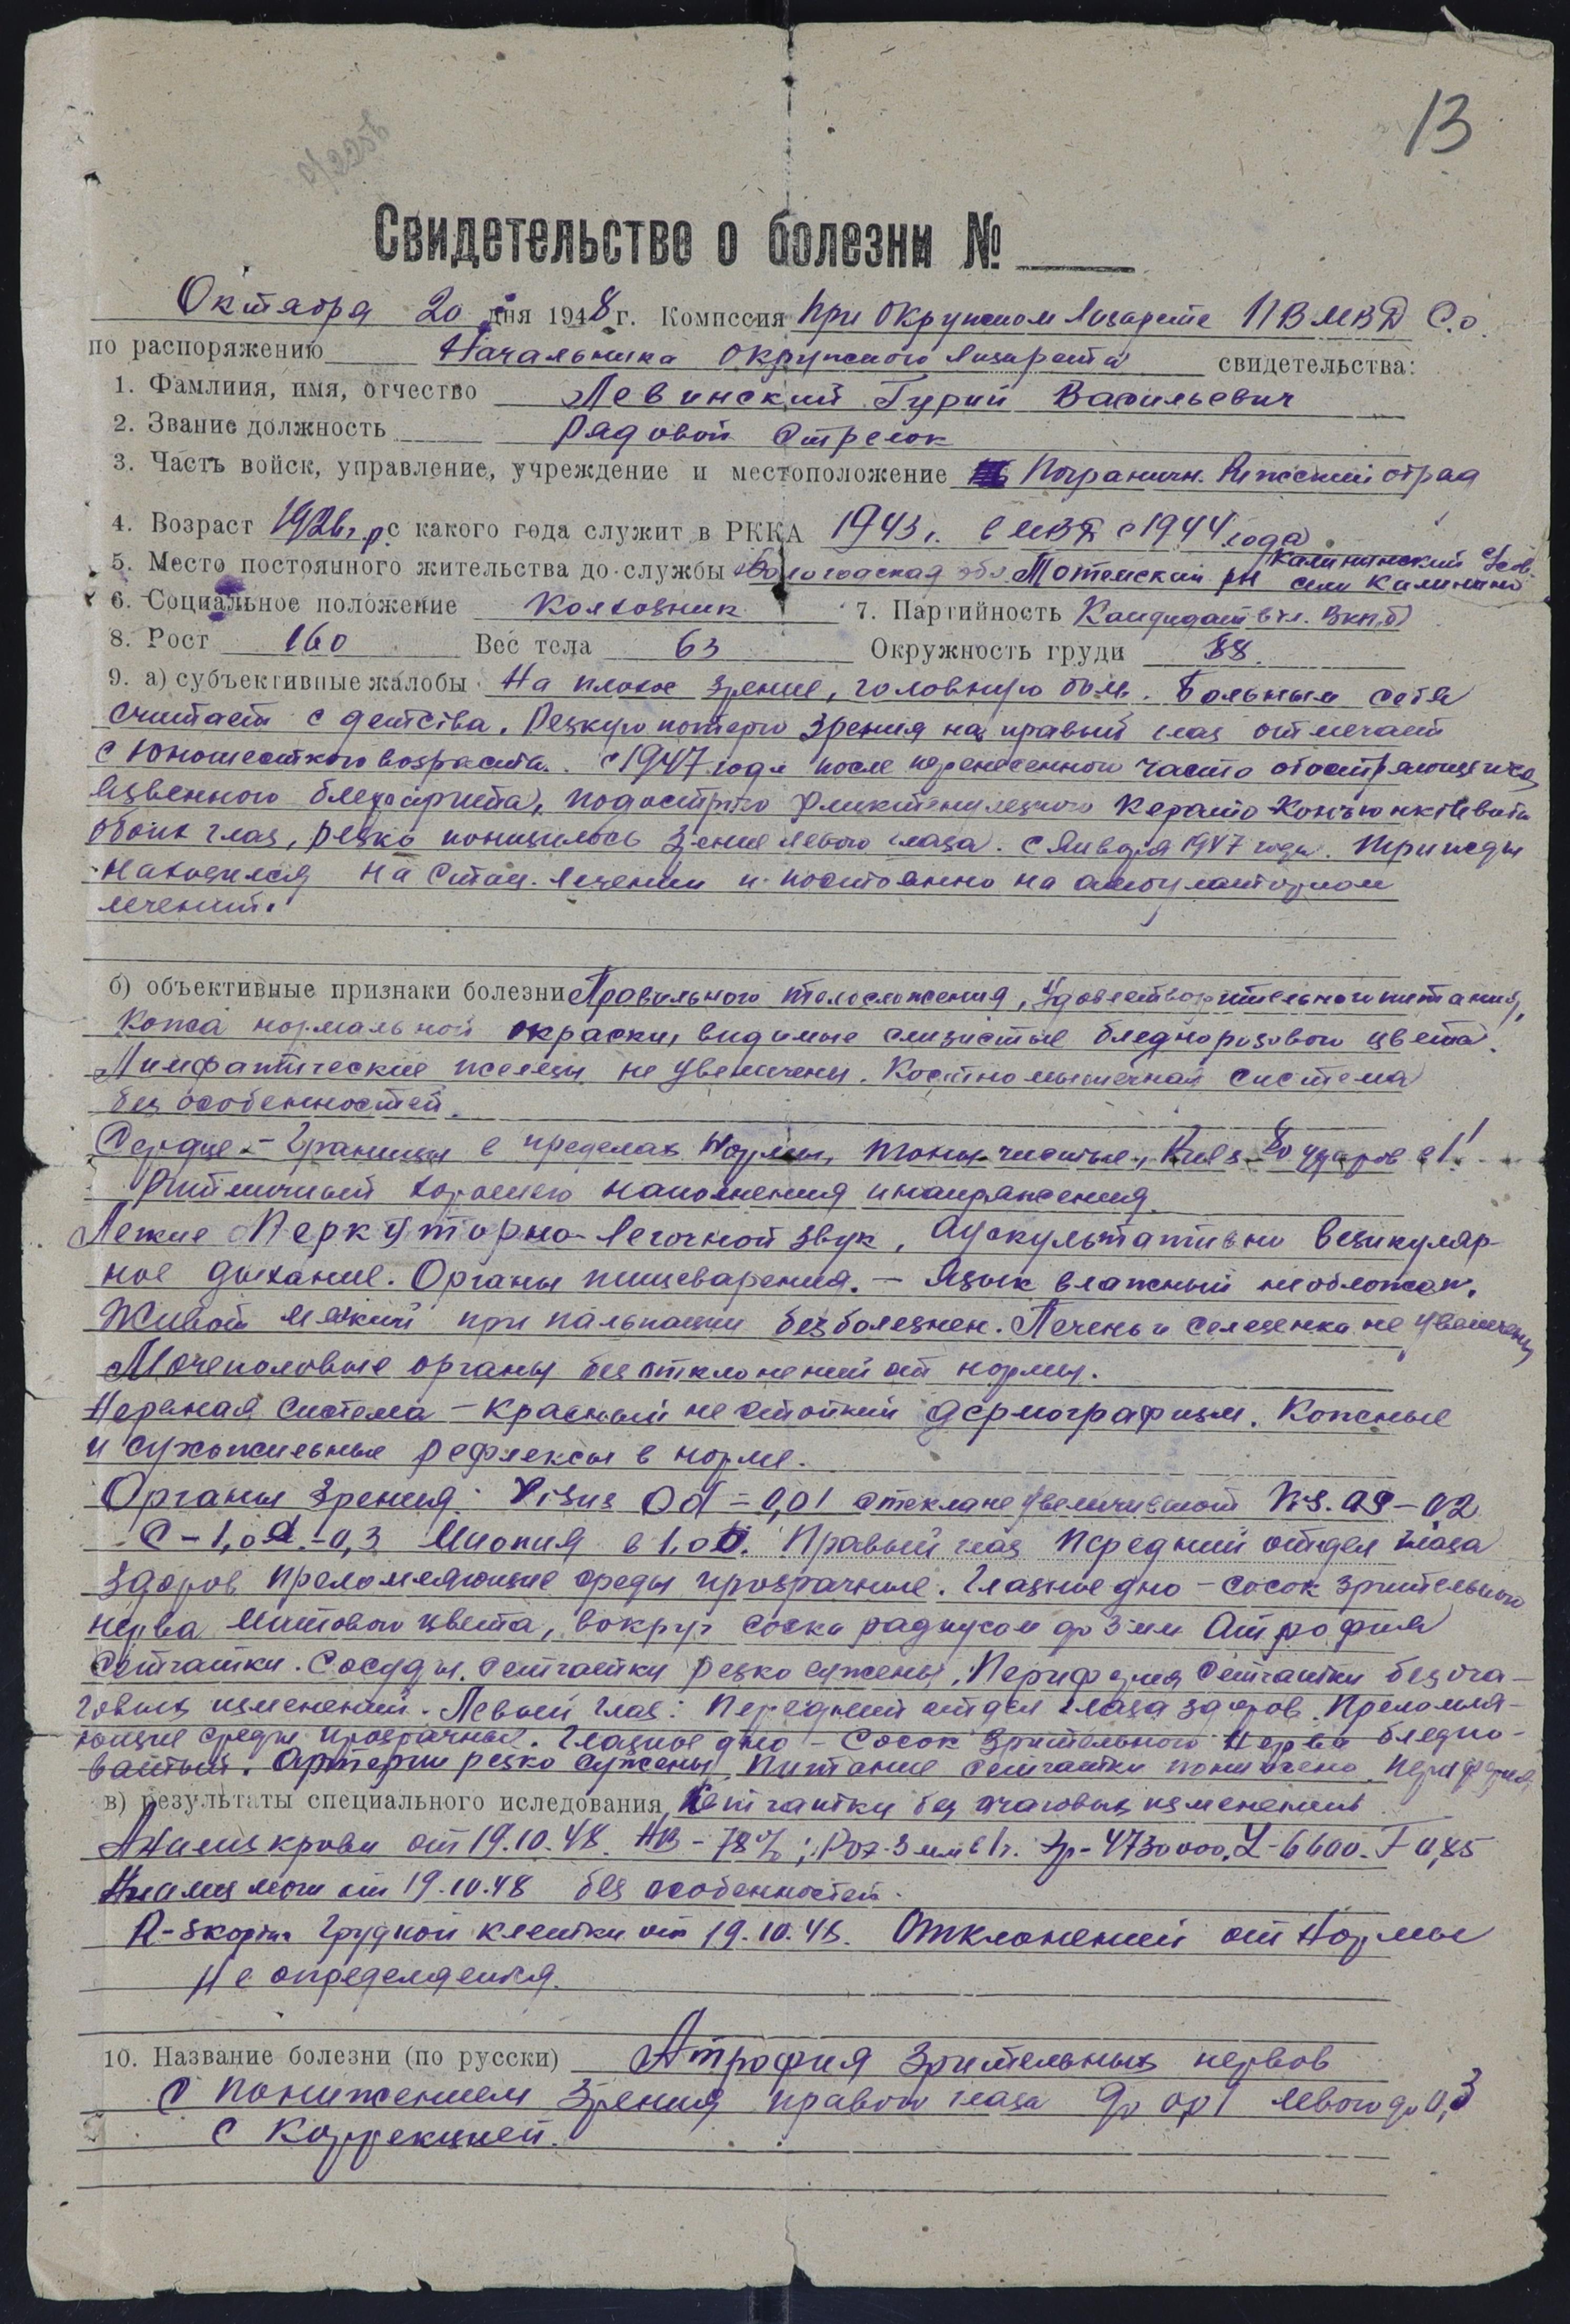 13
Свидетельство о болезни №
Октября 20 дня 1948 г. Комиссия при Окружном Лазарете ПВ МВД С.О.
по распоряжению Начальника окружного Лазарета свидетельства:
1. Фамлиия, имя, отчество Левинский Гурий Васильевич
2. Звание должность Рядовой Стрелок
3. Часть войск, управление, учреждение и местоположение Погранични. отряд
4. Возраст 1926 г.р. с какого года служит в РККА 1943 г. в МВД с 1944 года
Калининский с/сов
5. Место постоянного жительства до службы Вологодская обл. Тотемский рн село Калинино
6. Социальное положение Колхозник 7. Партийность Кандидат в чл. ВКП(б)
8. Рост 160 Вес тела 63 Окружность груди 88.
9. а) субъективные жалобы На плохое зрение, головную боль. Больным себя
считает с детства. Резкую потерю зрения на правый глаз отмечает
с юношеского возраста. С 1947 года после перенесенного часто обостряющегося
язвенного блефарита, подострого фликтенулезного Керато-Конъюнктивита
обоих глаз, резко понизилось зрение левого глаза. С Января 1947 года. Трижды
находился на Стац. лечении и постоянно на амбулаторном
лечении.
б) объективные признаки болезни Правильного телосложения, удовлетворительного питания,
Кожа нормальной окраски, видимые слизистые бледнорозового цвета.
Лимфатические железы не увеличены. Костномышечная система
без особенностей.
Сердце - Границы в пределах Нормы, тоны чистые, 80 ударов в 1'.
Ритмичный хорошего наполнения и напряжения.
Легкие Перкуторно - Легочной звук, Аускультативно везикуляр-
ное дыхание. Органы пищеварения. - Язык влажный не обложен.
Живот мягкий при пальпации безболезнен. Печень и селезенка не увеличены
Мочеполовые органы без отклонений от нормы.
Нервная система - Красный не стойкий дермографизм. Кожные
и сухожильные рефлексы в норме.
Органы зрения: Visus Od = 0,01 стекла не увеличивают Vis. OS - 0,2
С - 1,0 d. - 0,3 Миопия в 1.0 D. Правый глаз Передний отдел глаза
здоров преломляющие среды прозрачные. Глазное дно - сосок зрительного
нерва цвета, вокруг соска радиусом до 3 мм Атрофия
сетчатки. Сосуды сетчатки резко сужены, Периферия Сетчатки без оча-
говых изменений. Левый глаз: Передний отдел глаза здоров. Преломля-
ющие среды прозрачные. Глазное дно - Сосок Зрительного Нерва бледно-
ватый. Артерии резко сужены, Питание сетчатки понижено, периферия
в) результаты специального иследования Сетчатки без очаговых изменений
Анализ крови от 19.10.48. HB - 78%; РОЭ - 3 мм в 1 ч. Эр - 4730000. L - 6600. F 0,85
Анализ мочи от 19.10.48 без особенностей.
R-скопия Грудной клетки от 19.10.48. Отклонений от Нормы
Не определяется.
10. Название болезни (по русски) Атрофия Зрительных нервов
С понижением Зрения правого глаза до 0,01 левого до 0,3
с Коррекцией.